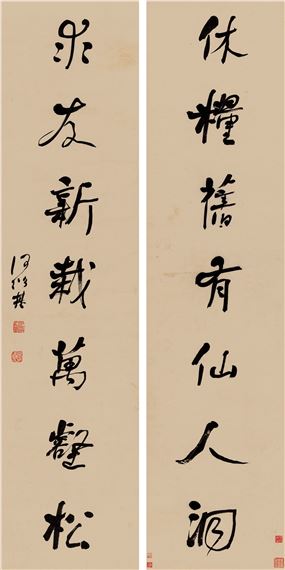 休糧舊有仙人洞
求友新栽萬壑松
何紹基